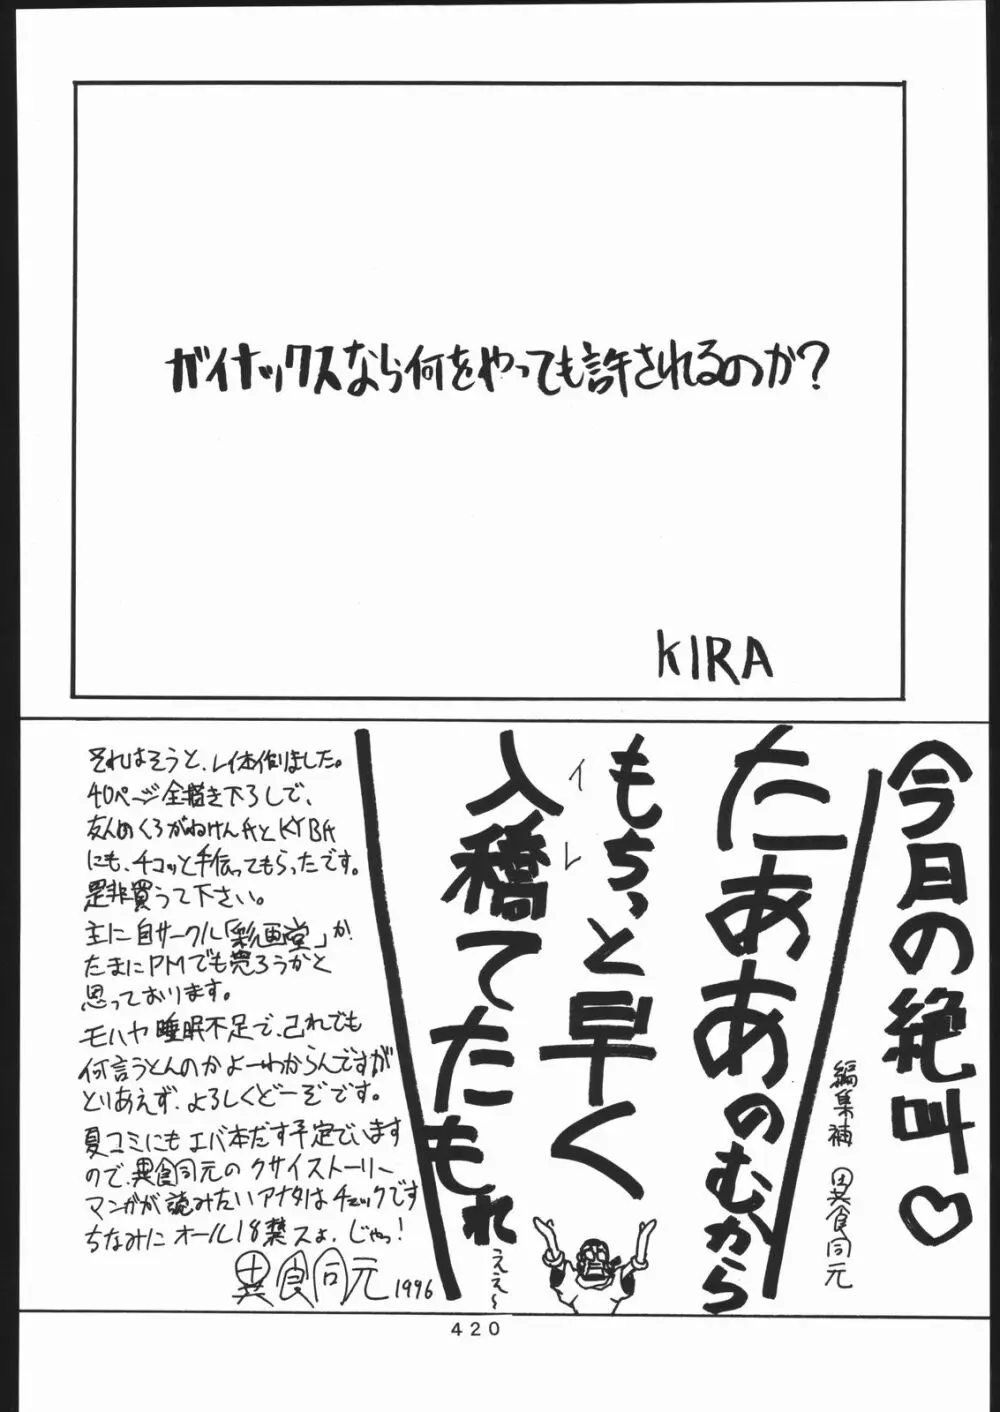 ガイナックスなら何をやっても許されるのか?
KIRA
今月の絶叫♡
編集補 異食同元
たああのむから
もちっと早く
イレ
入稿てたもれ
ええ~
それはそうと、レイ本作りました。
40ページ全描き下ろしで、
友人めくろがねけんAとKYBA
にも、チコッと手伝ってもらったです。
是非買うて下さい。
主に自サークル「彩画堂」か
たまにPMでも売ろうかと
思っております。
モハヤ睡眠不足で、己れでも
何言うとんのかよーわからんですが
とりあえず、よろしくどーぞです。
夏コミにもエバ本だす予定でいます
ので、異食同元のクサイストーリー
マンガが読みたいアナタはチェックです
ちなみにオール18禁スよ、じゃっ!
異食同元 1996
420